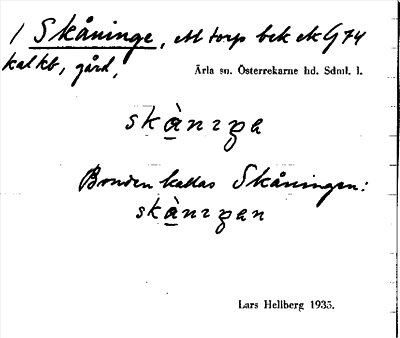 1 Skåninge, ett torp bek ek G 74
kalkb, gård,
Ärla sn. Österrekarne hd. Sdml. l.
Bonden kallas Skåningen:
Lars Hellberg 1935.